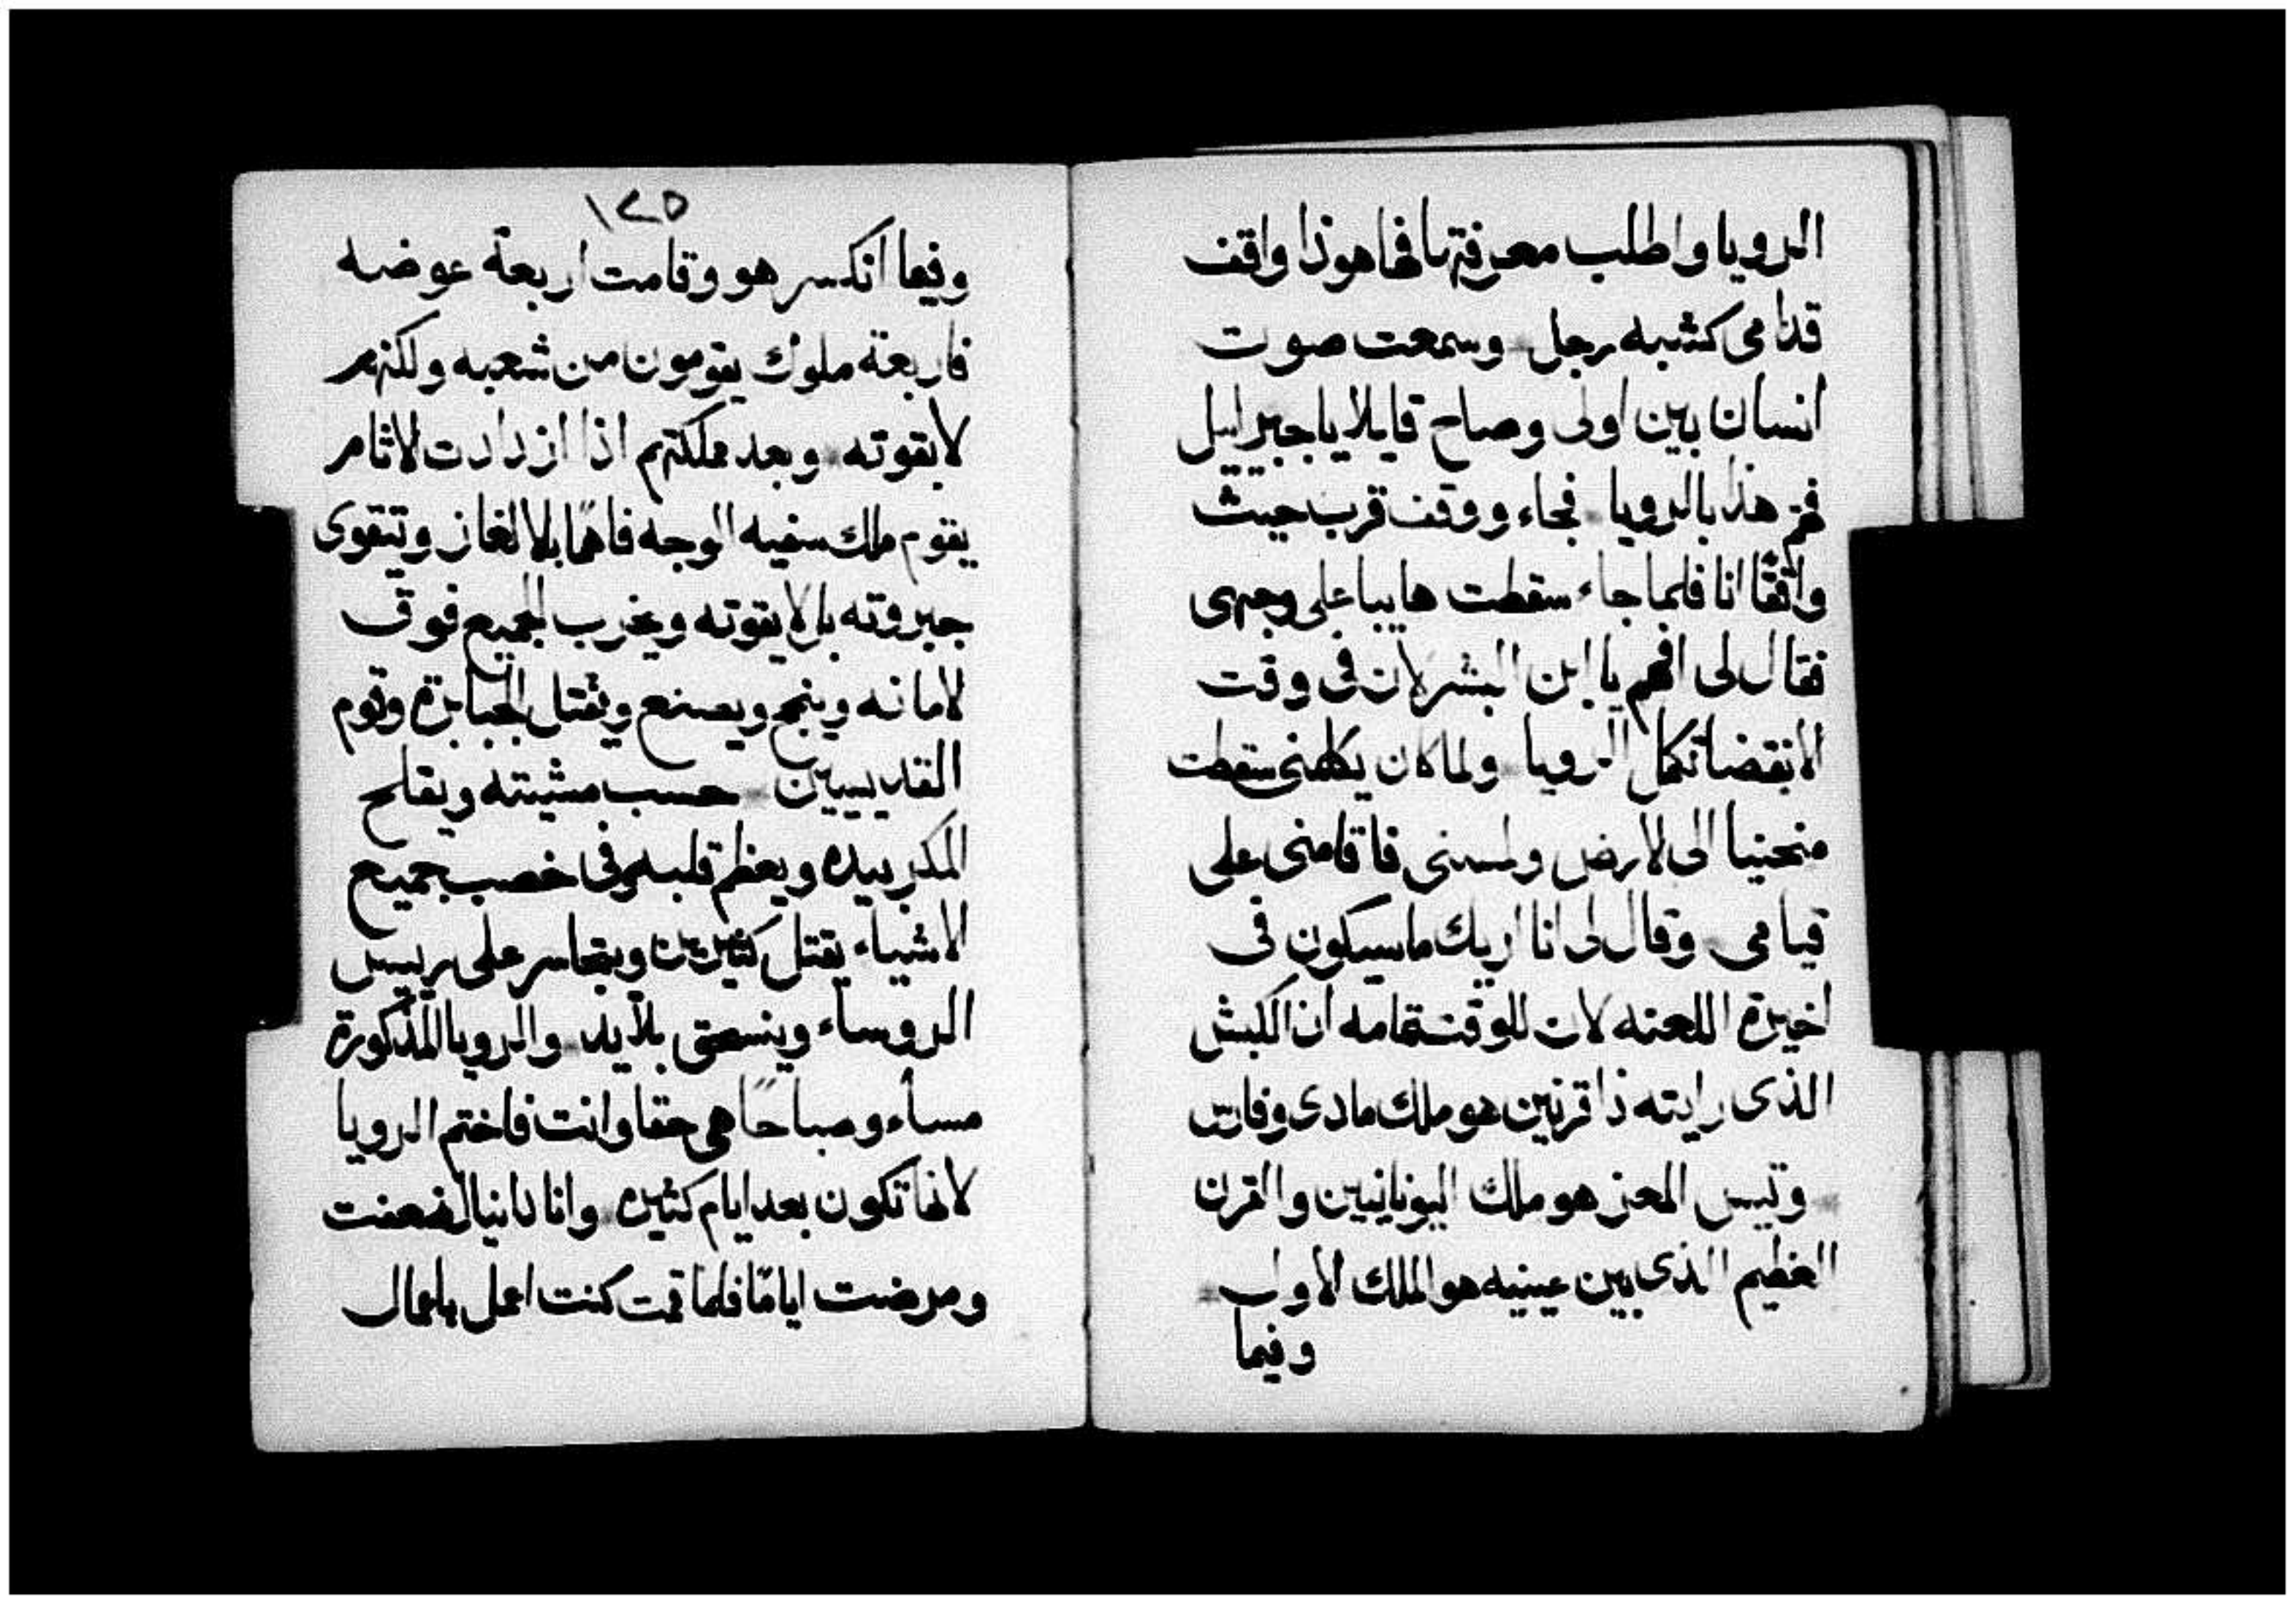 الرويا واطلب معرفتها فها هوذا واقف
قدامى كشبه رجل وسمعت صوت
انسان بين اولى وصاح قايلا يا جبراييل
فهم هذا بالرويا فجاء ووقف قرب حيث
واقفا انا فلما جاء سقطت هايبا على وجهى
فقال لى افهم يا ابن البشر لان فى وقت
الانقضا تكمل الرويا ولما كان يكلمنى سقطت
منحنيا الى لارض ولمسنى فاقامنى على
قيامى وقال لى انا اريك ما سيكون فى
اخيرة اللعنه لان للوقت تمامه ان الكبش
الذى رايته ذا قرنين هو ملك مادى وفارس
وتيس المعز هو ملك اليونانيين والقرن
العظيم الذى بين عينيه هو الملك الاول
وفيما
١٢٥
وفيما انكسر هو وقامت اربعة عوضه
فاربعة ملوك يقومون من شعبه ولكنهم
لا بقوته وبعد مملكتهم اذا ازدادت لاثام
يقوم ملك سفيه الوجه فاهما بالالغاز وتتقوى
جبروته بل لا بقوته ويخرب الجميع فوق
لامانه وينجح ويصنع ويقتل الجبابرة وقوم
القديسين حسب مشيته ويفلح
المكر بيده ويعظم قلبه وفى خصب جميع
الاشياء يقتل كثيرين ويتجاسر على رييس
الروساء وينسحق بلا يد والرويا المذكورة
مساء وصباحا هى حقا وانت فاختم الرويا
لانها تكون بعد ايام كثيره وانا دانيال ضعفت
ومرضت اياما فلما قمت كنت اعمل باعمال